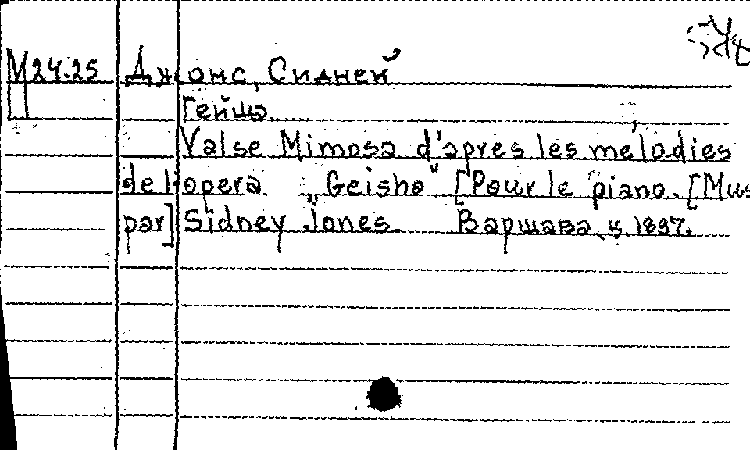 М24.25 Джонс, Сидней
Гейша.
Valse Mimosa d'après les mélodies
de l'opera „Geisha“ [Pour le piano. [Mus
par] Sidney Jones. Варшава, ц. 1897.